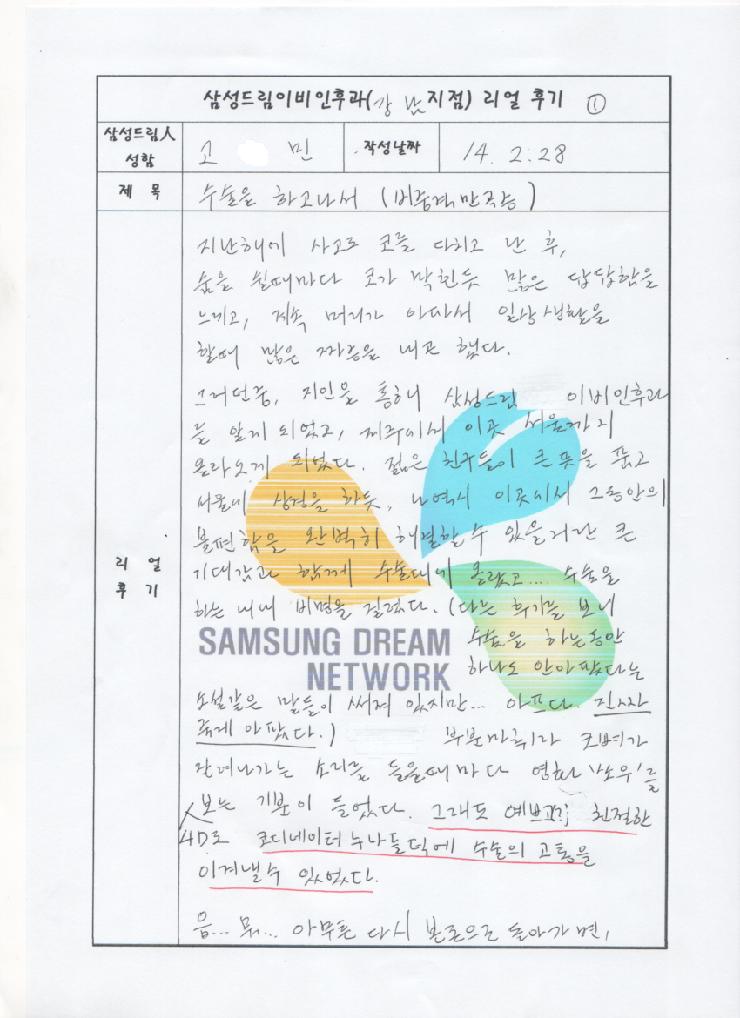 삼성드림이비인후과(강남지점) 리얼 후기 ①
삼성드림人 성함
고 민
작성날짜
14. 2. 28
제 목
수술을 하고나서 (비중격만곡증)
리 얼
후 기
지난해에 사고로 코를 다치고 난 후,
숨을 쉴때마다 코가 막힌듯 많은 답답함을
느끼고, 계속 머리가 아파서 일상생활을
할때 많은 짜증을 내곤 했다.
그러던중, 지인을 통하여 삼성드림 이비인후과
를 알게 되었고, 제주에서 이곳 서울까지
올라오게 되었다. 젊은 친구들이 큰 뜻을 품고
서울에 상경을 하듯, 나역시 이곳에서 그동안의
불편함을 완벽히 해결할 수 있을거란 큰
기대감과 함께 수술대에 올랐고.... 수술을
하는 내내 비명을 질렀다. (다른 후기를 보니
수술을 하는동안
하나도 안아팠다는
SAMSUNG DREAM
NETWORK
소설같은 말들이 써져 있지만... 아프다. 진짜
아팠다.) 부분마취라 코뼈가
잘려나가는 소리를 들을때마다 영화 '쏘우'를
4D로 보는 기분이 들었다. 그래도 예쁘고 친절한
코디네이터 누나들덕에 수술의 고통을
이겨낼수 있었다.
음... 뭐... 아무튼 다시 본론으로 돌아가면,